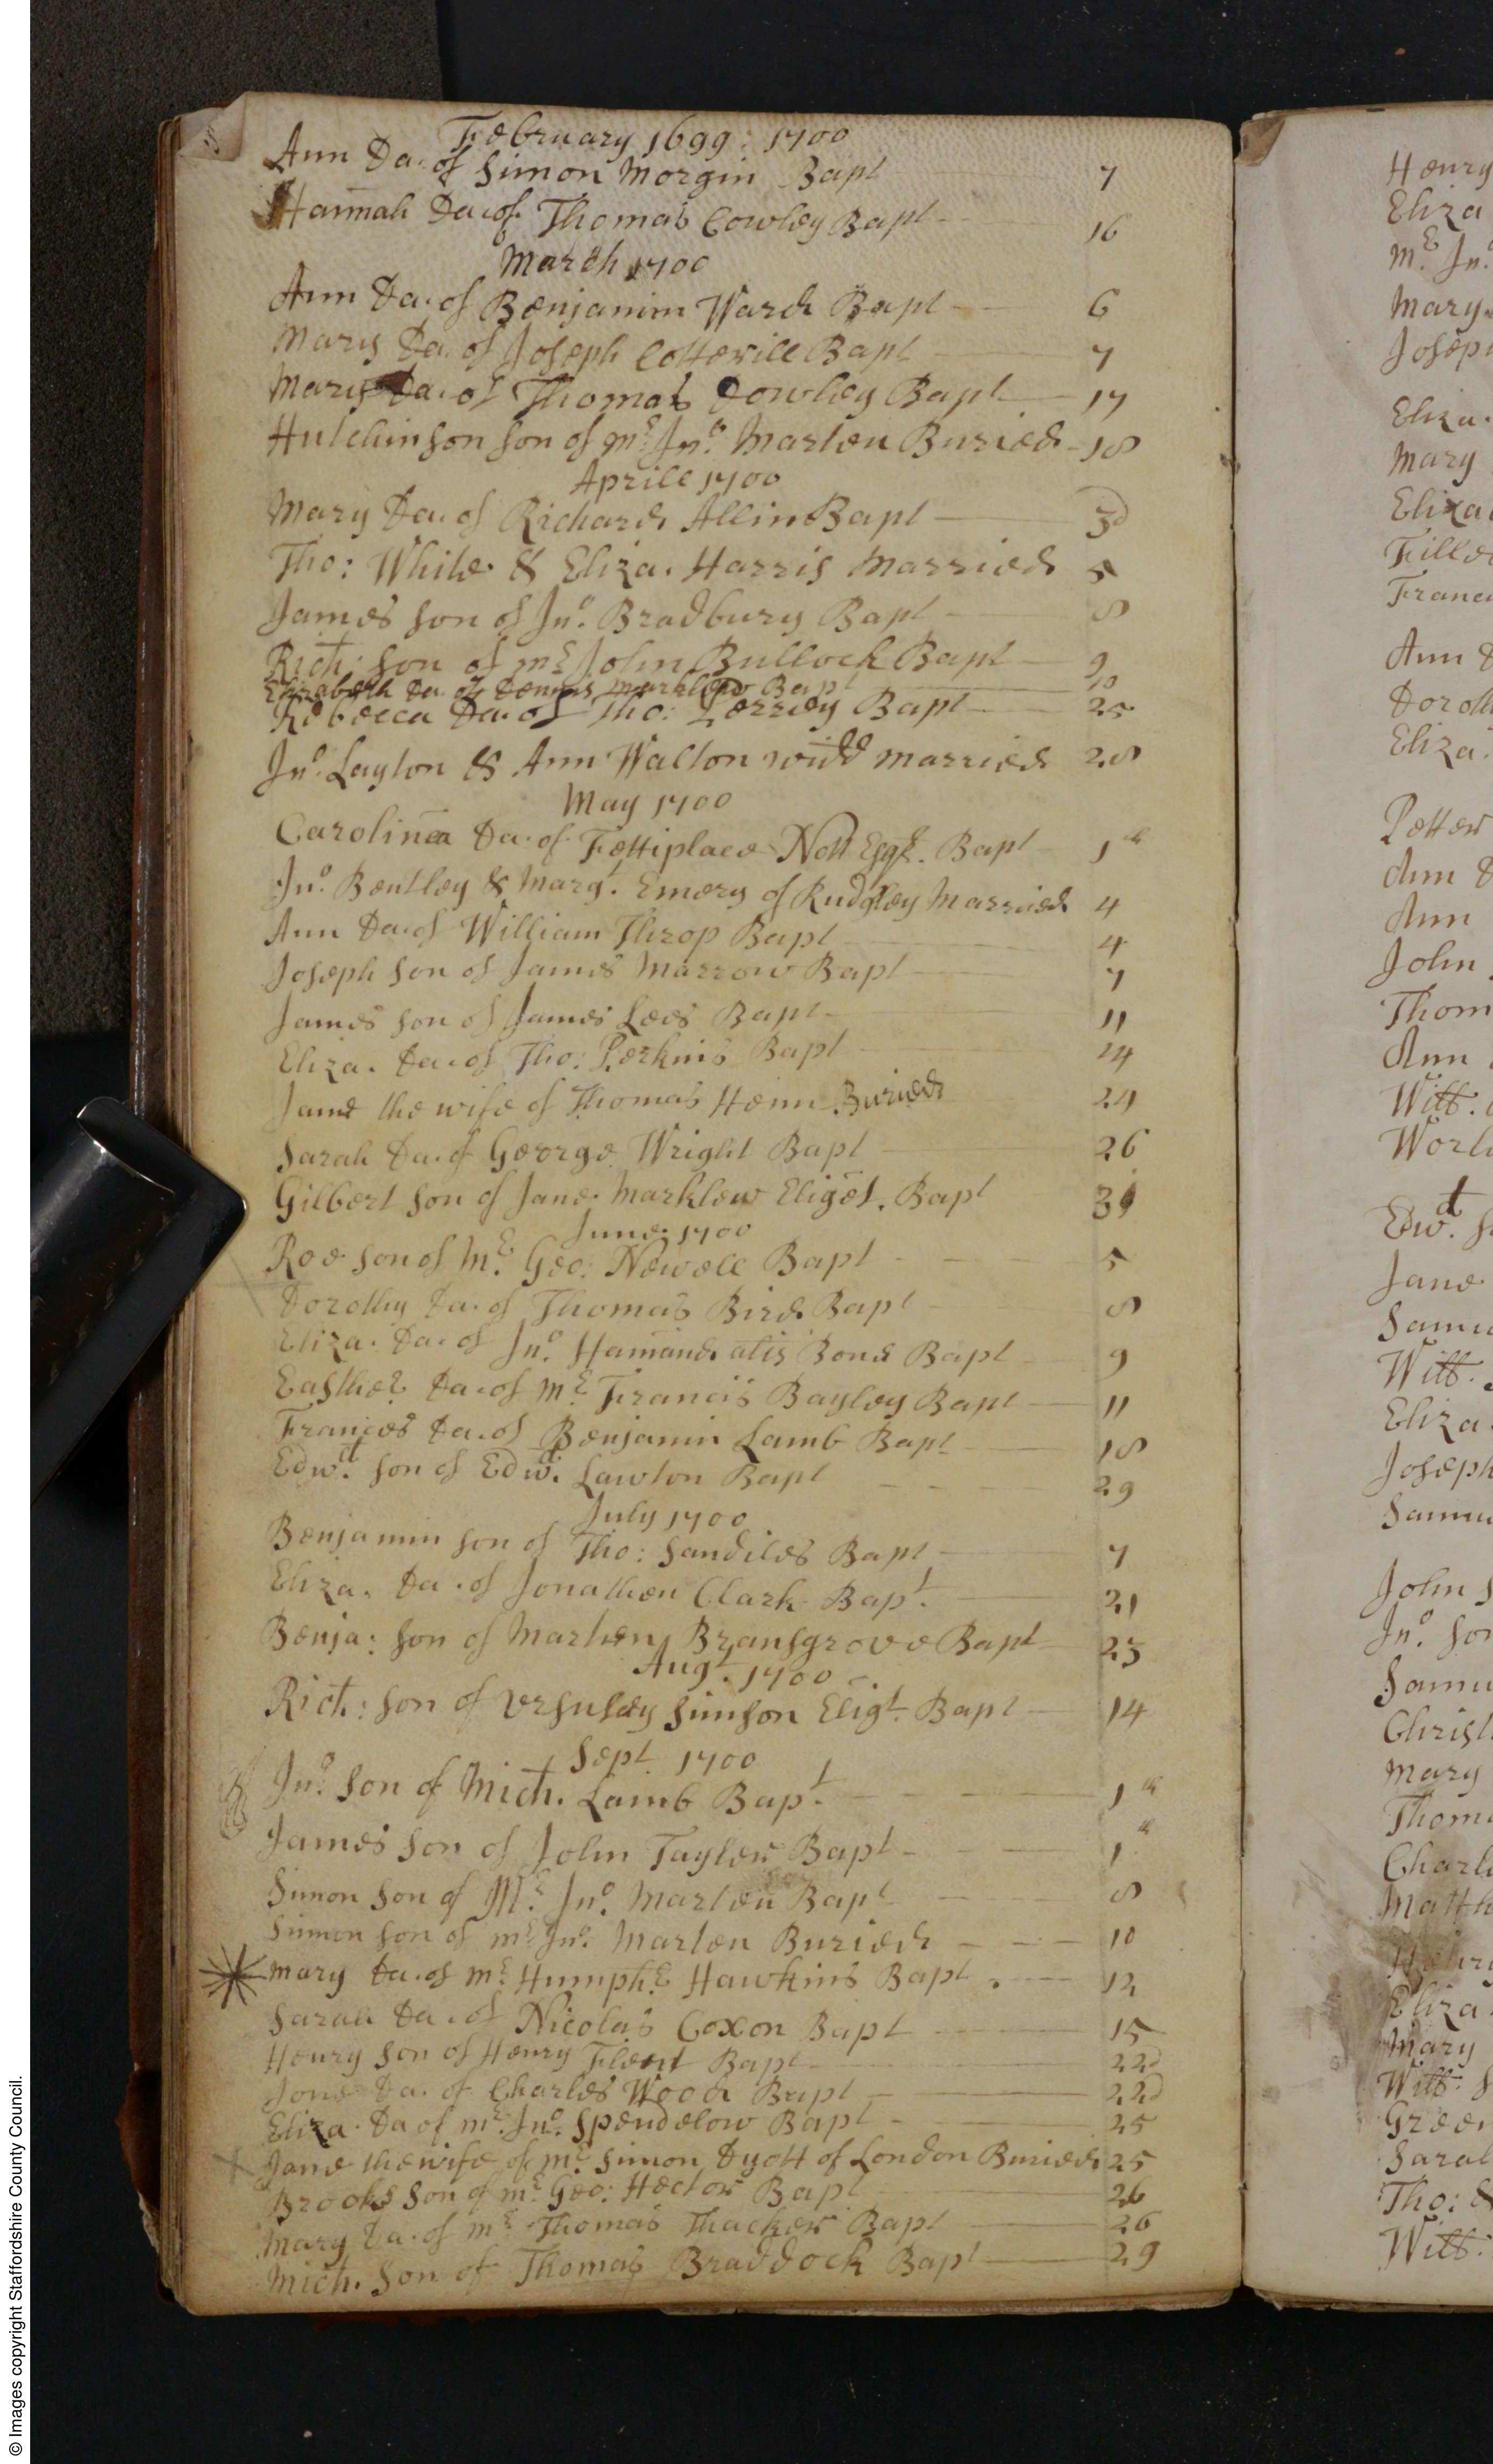 February 1699 : 1700
Ann Da. of Simon Morgin Bapt 7
Hannah Da. of Thomas Cowley Bapt 16
March 1700
Ann Da. of Benjamim Ward Bapt 6
Mary Da. of Joseph Cotterill Bapt 7
Mary Da. of Thomas Cowley Bapt 17
Hutchinson son of Mr. Jno. Marten Buried 18
Aprill 1700
Mary Da. of Richard Allin Bapt 3d
Tho: White & Eliza. Harris Married 5
James son of Jno. Bradbury Bapt 8
Rich: son of Mr John Bullock Bapt 9
Elizabeth Da. of Dennis Marklew Bapt 10
Rebecca Da. of Tho: Perrey Bapt 25
Jno. Layton & Ann Walton widd married 28
May 1700
Carolina Da. of Fettiplace Nott Esqr. Bapt 1th
Jno. Bentley & Margt. Emery of Rudgley Married 4
Ann Da. of William Throp Bapt 4
Joseph son of James Marrow Bapt 7
James son of James Lees Bapt 11
Eliza. Da. of Tho: Perkins Bapt 14
Jane the wife of Thomas Henn Buried 24
Sarah Da. of George Wright Bapt 26
Gilbert son of Jane Marklew Eliget. Bapt 31
June 1700
Roe son of Mr. Geo: Newell Bapt 5
Dorothy Da. of Thomas Bird Bapt 8
Eliza. Da. of Jno. Hamand atis Bond Bapt 9
Easther Da. of Mr Francis Bayley Bapt 11
Frances Da. of Benjamin Lamb Bapt 18
Edwd. son of Edwd. Lawton Bapt 29
July 1700
Benjamin son of Tho: Sandiles Bapt 7
Eliza. Da. of Jonathen Clark Bapt. 21
Benja: son of Marthen Bransgrove Bapt 23
Augt. 1700
Rich: son of Ursuley Simson Eligt. Bapt 14
Sept. 1700
Jno. son of Mich. Lamb Bapt. 1th
James son of John Tayler Bapt 1th
Simon son of Mr. Jno. Marten Bapt 8
Simon son of Mr Jno. Marten Buried 10
Mary Da. of Mr Humphr. Hawkins Bapt. 12
Sarah Da. of Nicolas Coxon Bapt 15
Henry son of Henry Bapt 22d
Jone Da. of Charles Wood Bapt 22d
Eliza. Da of Mr. Jno. Spendelow Bapt 25
Jane the wife of Mr Simon Dyott of London Buried 25
Brooks son of Mr Geo: Hector Bapt 26
Mary Da. of Mr Thomas Thacker Bapt 26
Mich. Son of Thomas Braddock Bapt 29
Henry
Eliza
Mr. Jn.
Mary
Joseph
Eliza.
Mary
Eliza
Franci
Ann &
Doroth
Eliza.
Petter
Ann &
Ann
John
Thom
Ann
Will.
Edwd. S
Jane
Samu
Will.
Eliza.
Joseph
Samu
John S
Jno. son
Samu
Christ
Mary
Thoma
Charl
Matth
Henry
Eliza
Mary
Will. S
Green
Sarah
Tho: &
Will.
© Images copyright Staffordshire County Council.